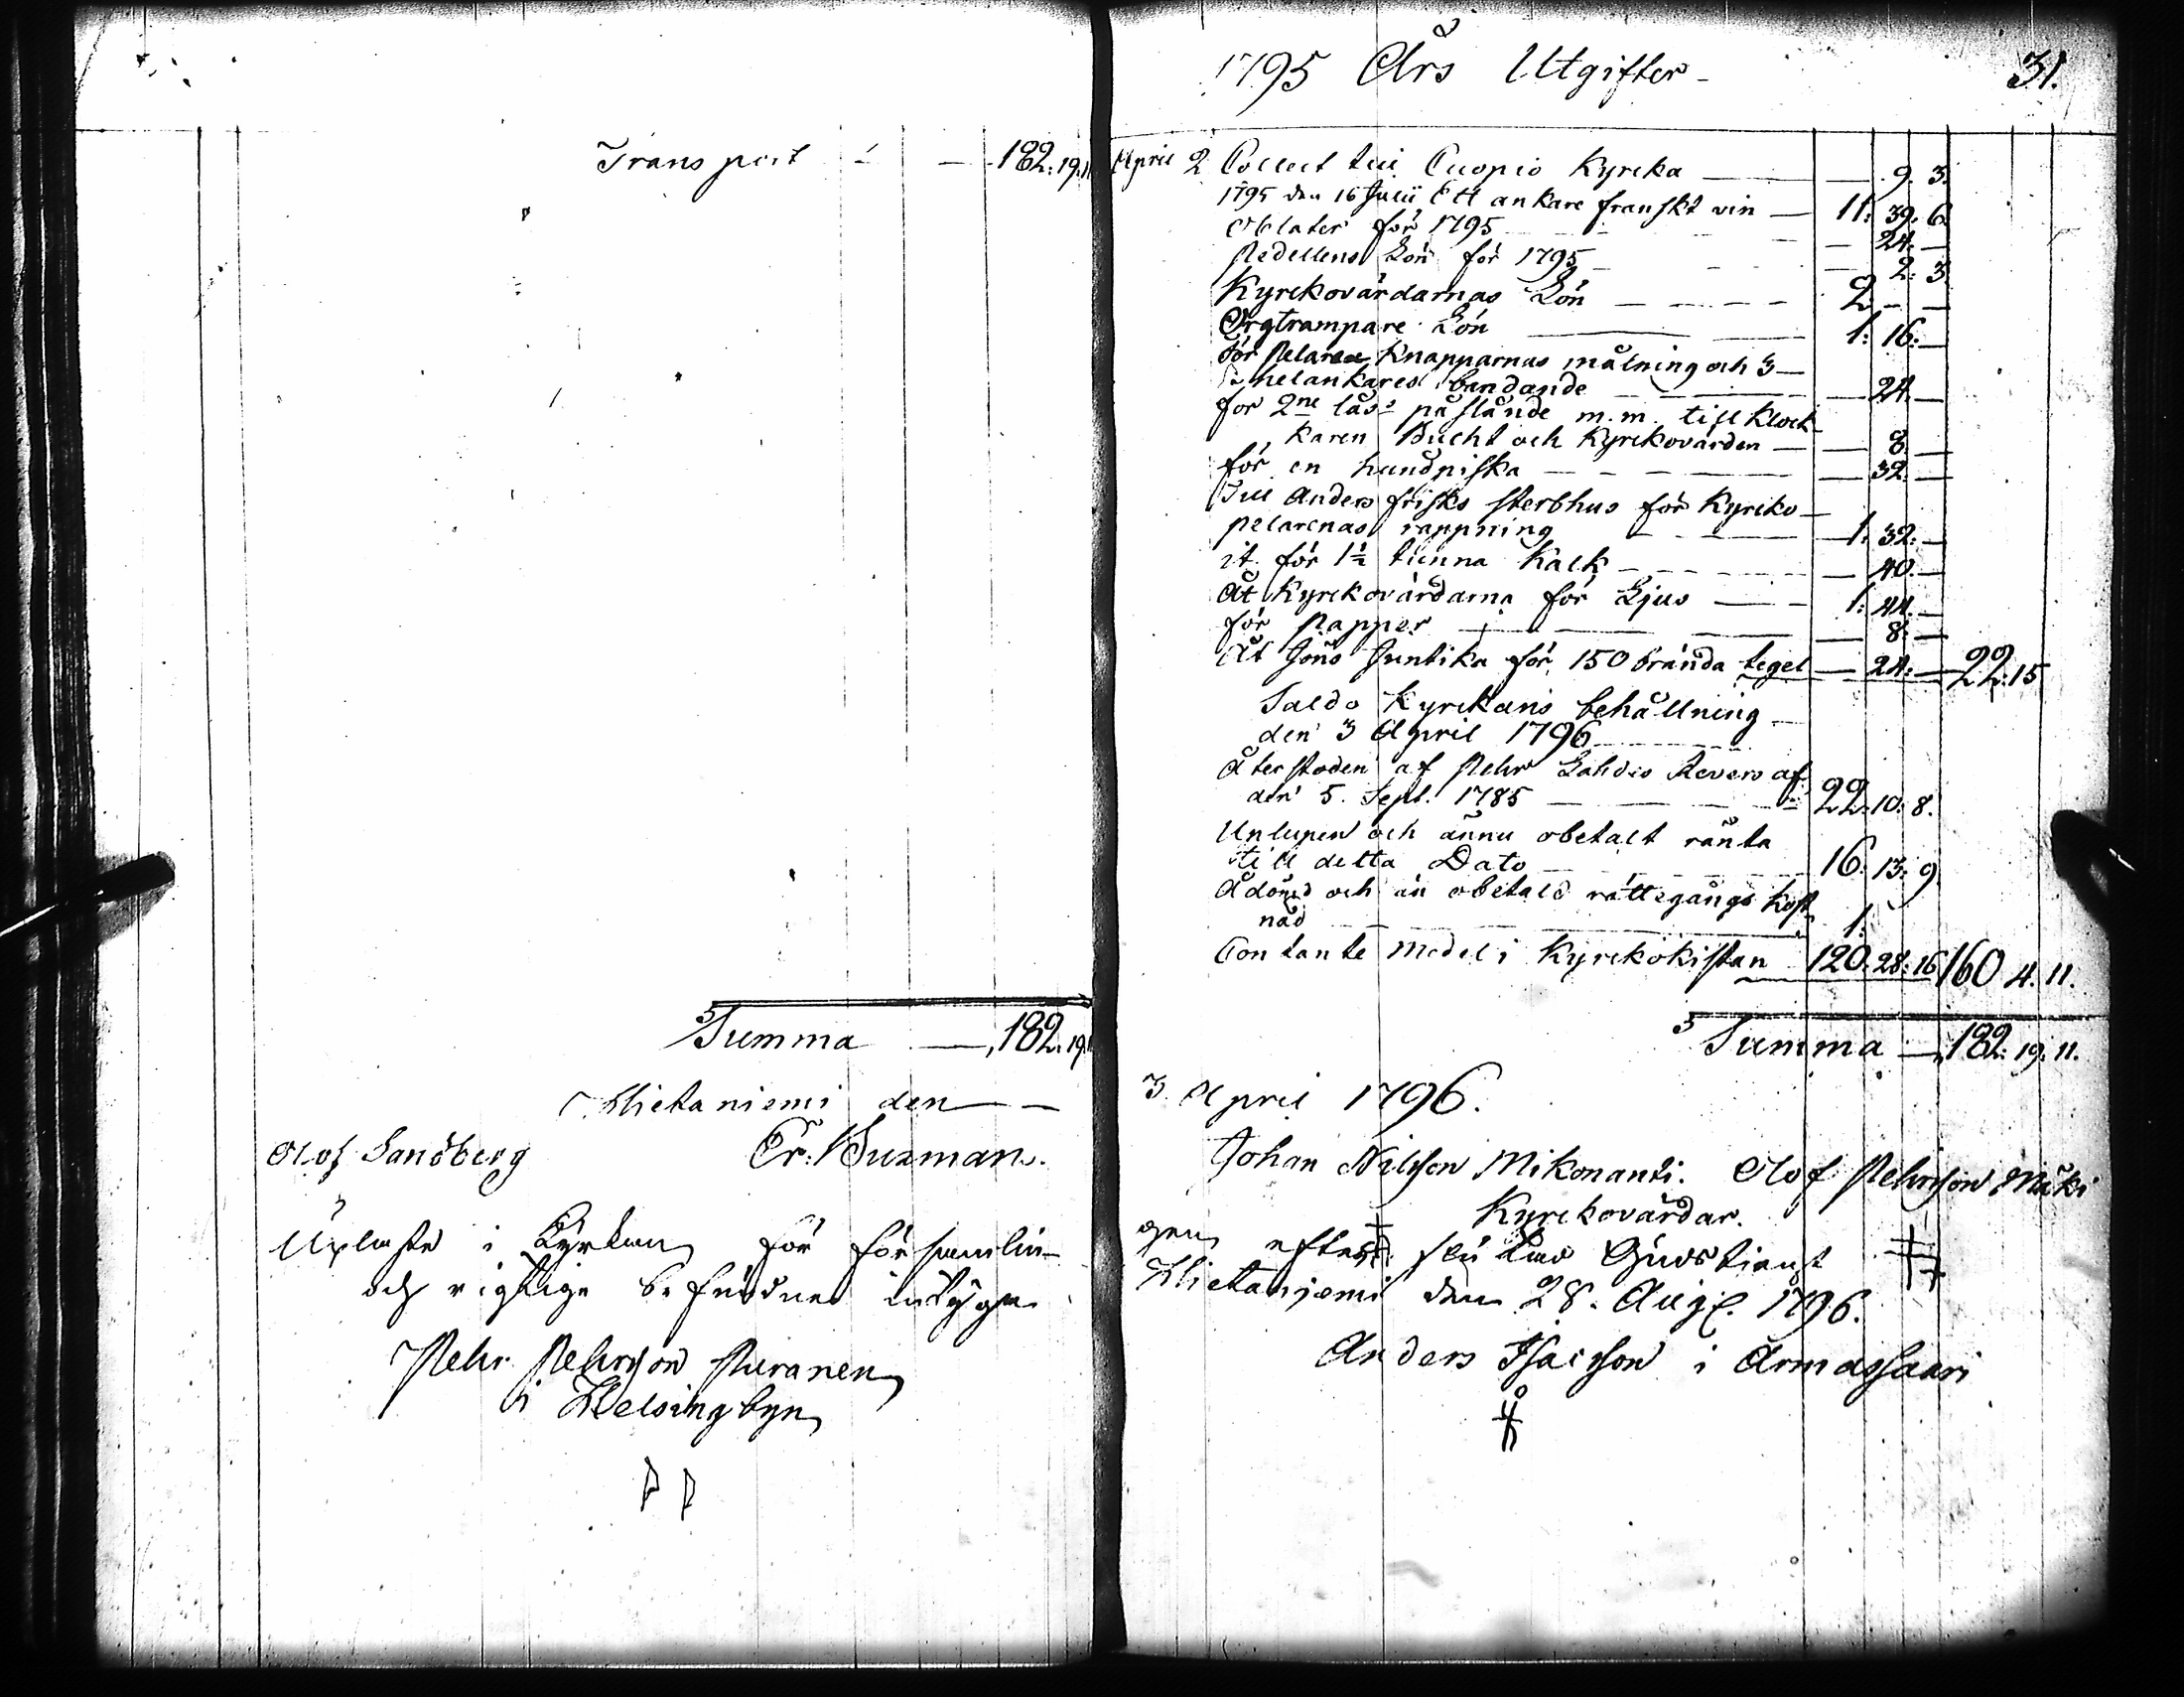 Transport - - 182: 19. 11
Summa - 182. 19. 11
Hietaniemi den - -
Olof Sandberg Er: Wuxman.
Upläste i Kyrkan för församlin-
och rigtige befundne intygar
Pehr Pehrsson Puranen
i Helsingbyn
1795 Års Utgifter - 31.
April 2 Collect till Cuopio Kyrcka - 9. 3.
1795 den 16 Julii Ett ankare franskt vin - 11: 39. 6.
Oblater för 1795 - 24. -
Pedellens Lön för 1795 - 2: 3
Kyrckovärdarnas Lön - 2. - -
Orgtrampare Lön - 1: 16. -
För Pelare Knapparnas målning och 3 -
st helankares bandande - 24. -
för 2ne lås påslående m.m. till Klock-
karen Bucht och Kyrckovärden - 8. -
för en hundpiska - 32. -
Till Anders Frisks sterbhus för Kyrcko-
pelarenas rappning - 1. 32. -
it. för 1½ tunna Kalk - 40. -
Åt Kyrckovärdarna för Ljus - 1: 44. -
för Papper - 8. -
Åt Jöns Juntika för 150 brända tegel - 24: - 22. 15
Saldo Kyrckans behållning -
den 3 April 1796
Återstoden af Pehr Lahdes Revers af
den 5. Sept. 1785 - 22. 10. 8.
Uplupen och ännu obetalt ränta
till detta Dato - 16. 13. 9.
Ådömd och än obetald rättegångs kost-
nad - 1.
Contante medel i Kyrckokistan 120. 28. 16 160 4. 11.
Summa - 182: 19. 11.
3. April 1796.
Johan Nilsson Mikonanti. Olof Pehrsson Mäki
Kyrckovärdar.
gen efter slutad Gudstienst
Hietaniemi den 28. Aug. 1796.
Anders Isacsson i Armassaari